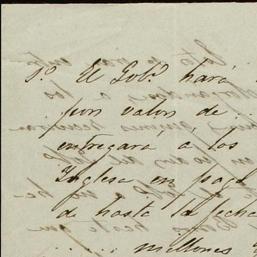 1º El Gobº hará
por valor de
entregará a los
Inglesa en pago
de hasta la fecha
millones